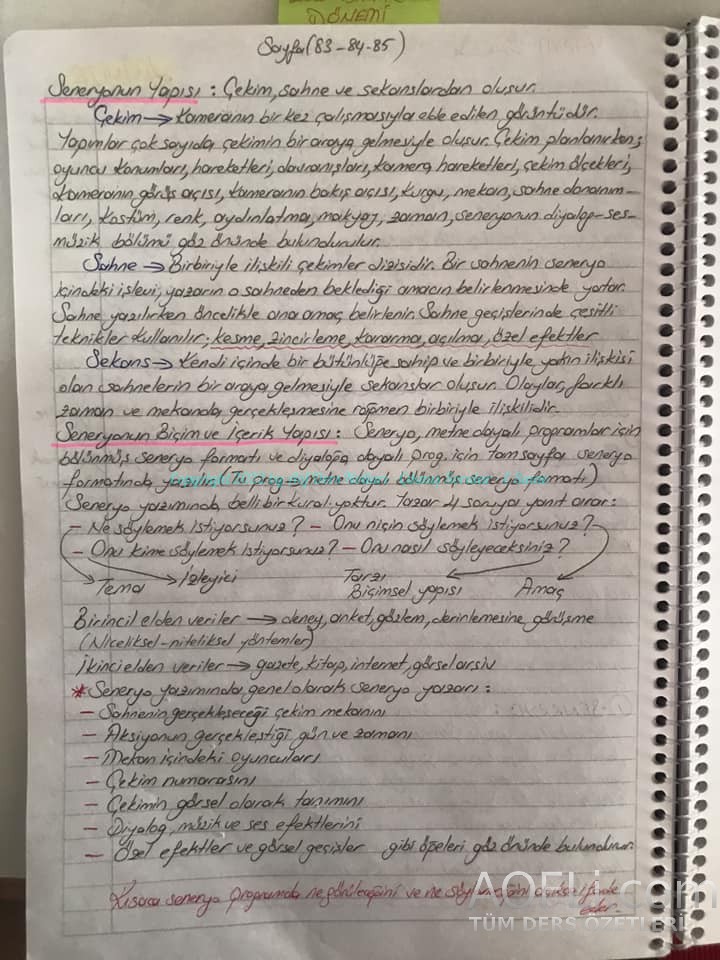 DÖNEMİ
Sayfa (83-84-85)
Seneryonun Yapısı : Çekim, sahne ve sekanslardan oluşur.
Çekim → Kameranın bir kez çalışmasıyla elde edilen görüntüdür.
Yapımlar çok sayıda çekimin bir araya gelmesiyle oluşur. Çekim planlanırken;
oyuncu konumları, hareketleri, davranışları, kamera hareketleri, çekim ölçekleri,
kameranın görüş açısı, kameranın bakış açısı, kurgu, mekan, sahne donanım-
ları, kostüm, renk, aydınlatma, makyaj, zaman, seneryonun diyalog-ses-
müzik bölümü göz önünde bulundurulur.
Sahne → Birbiriyle ilişkili çekimler dizisidir. Bir sahnenin seneryo
içindeki işlevi, yazarın o sahneden beklediği amacın belirlenmesinde yatar.
Sahne yazılırken öncelikle ana amaç belirlenir. Sahne geçişlerinde çeşitli
teknikler kullanılır; kesme, zincirleme, kararma, açılma, özel efektler
Sekans → Kendi içinde bir bütünlüğe sahip ve birbiriyle yakın ilişkisi
olan sahnelerin bir araya gelmesiyle sekanslar oluşur. Olaylar, farklı
zaman ve mekanda gerçekleşmesine rağmen birbiriyle ilişkilidir.
Seneryonun Biçim ve İçerik Yapısı : Seneryo, metne dayalı programlar için
bölünmüş seneryo formatı ve diyaloğa dayalı prog. için tam sayfa seneryo
formatında yazılır. (Tv prog → metne dayalı bölünmüş seneryo formatı)
Seneryo yazımında, belli bir kural yoktur. Yazar 4 soruya yanıt arar:
- Ne söylemek istiyorsunuz? - Onu niçin söylemek istiyorsunuz?
- Onu kime söylemek istiyorsunuz? - Onu nasıl söyleyeceksiniz?
Tema İzleyici Tarzı Biçimsel yapısı Amaç
Birincil elden veriler → deney, anket, gözlem, derinlemesine görüşme
(Niceliksel-niteliksel yöntemler)
İkinci elden veriler → gazete, kitap, internet, görsel arşiv
* Seneryo yazımında genel olarak seneryo yazarı :
- Sahnenin gerçekleşeceği çekim mekanını
- Aksiyonun gerçekleştiği gün ve zamanı
- Mekan içindeki oyuncuları
- Çekim numarasını
- Çekimin görsel olarak tanımını
- Diyalog, müzik ve ses efektlerini
- Özel efektler ve görsel geçişler gibi öğeleri göz önünde bulundurur.
Kısaca seneryo programda ne görüleceğini ve ne söyleneceğini açıkça ifade
eder.
AOFLi.com
TÜM DERS ÖZETLERİ